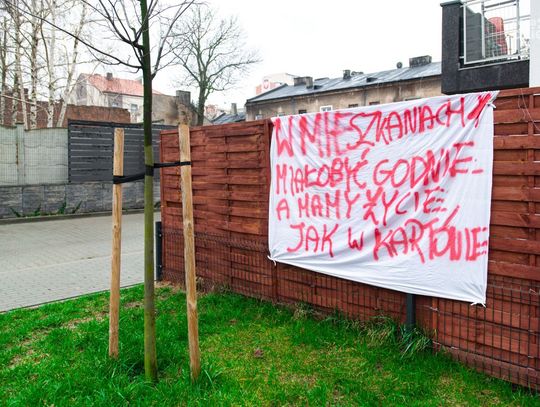 W MIESZKANIACH
MIAŁO BYĆ GODNIE -
A MAMY ŻYCIE
JAK W KARTONIE